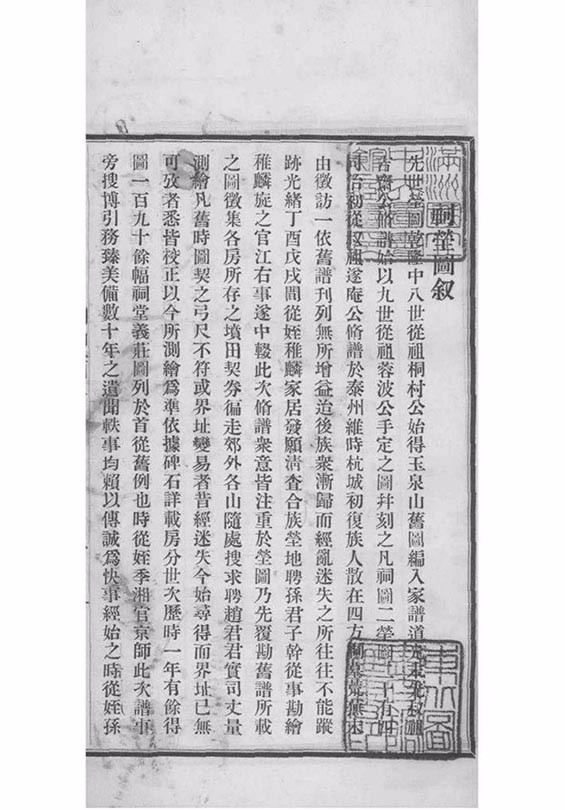 祠塋圖叙
先世塋圖乾隆中八世從祖桐村公始得玉泉山舊圖編入家譜道光
公脩譜始以九世從祖蓉波公手定之圖幷刻之凡祠圖二塋圖十有四
同治初從叔祖遂庵公脩譜於泰州維時杭城初復族人散在四方
由徵訪一依舊譜刊列無所增益迨後族衆漸歸而經亂迷失之所往往不能蹤
跡光緒丁酉戊戌間從姪稚麟家居發願清查合族塋地聘孫君子幹從事勘繪
稚麟旋之官江右事遂中輟此次脩譜衆意皆注重於塋圖乃先覆勘舊譜所載
之圖徵集各房所存之墳田契券徧走郊外各山隨處搜求聘趙君君實司丈量
測繪凡舊時圖契之弓尺不符或界址變易者昔經迷失今始尋得而界址已無
可攷者悉皆校正以今所測繪爲準依據碑石詳載房分世次歷時一年有餘得
圖一百九十餘幅祠堂義莊圖列於首從舊例也時從姪季湘官京師此次譜事
旁搜博引務臻美備數十年之遺聞軼事均賴以傳誠爲快事經始之時從姪孫